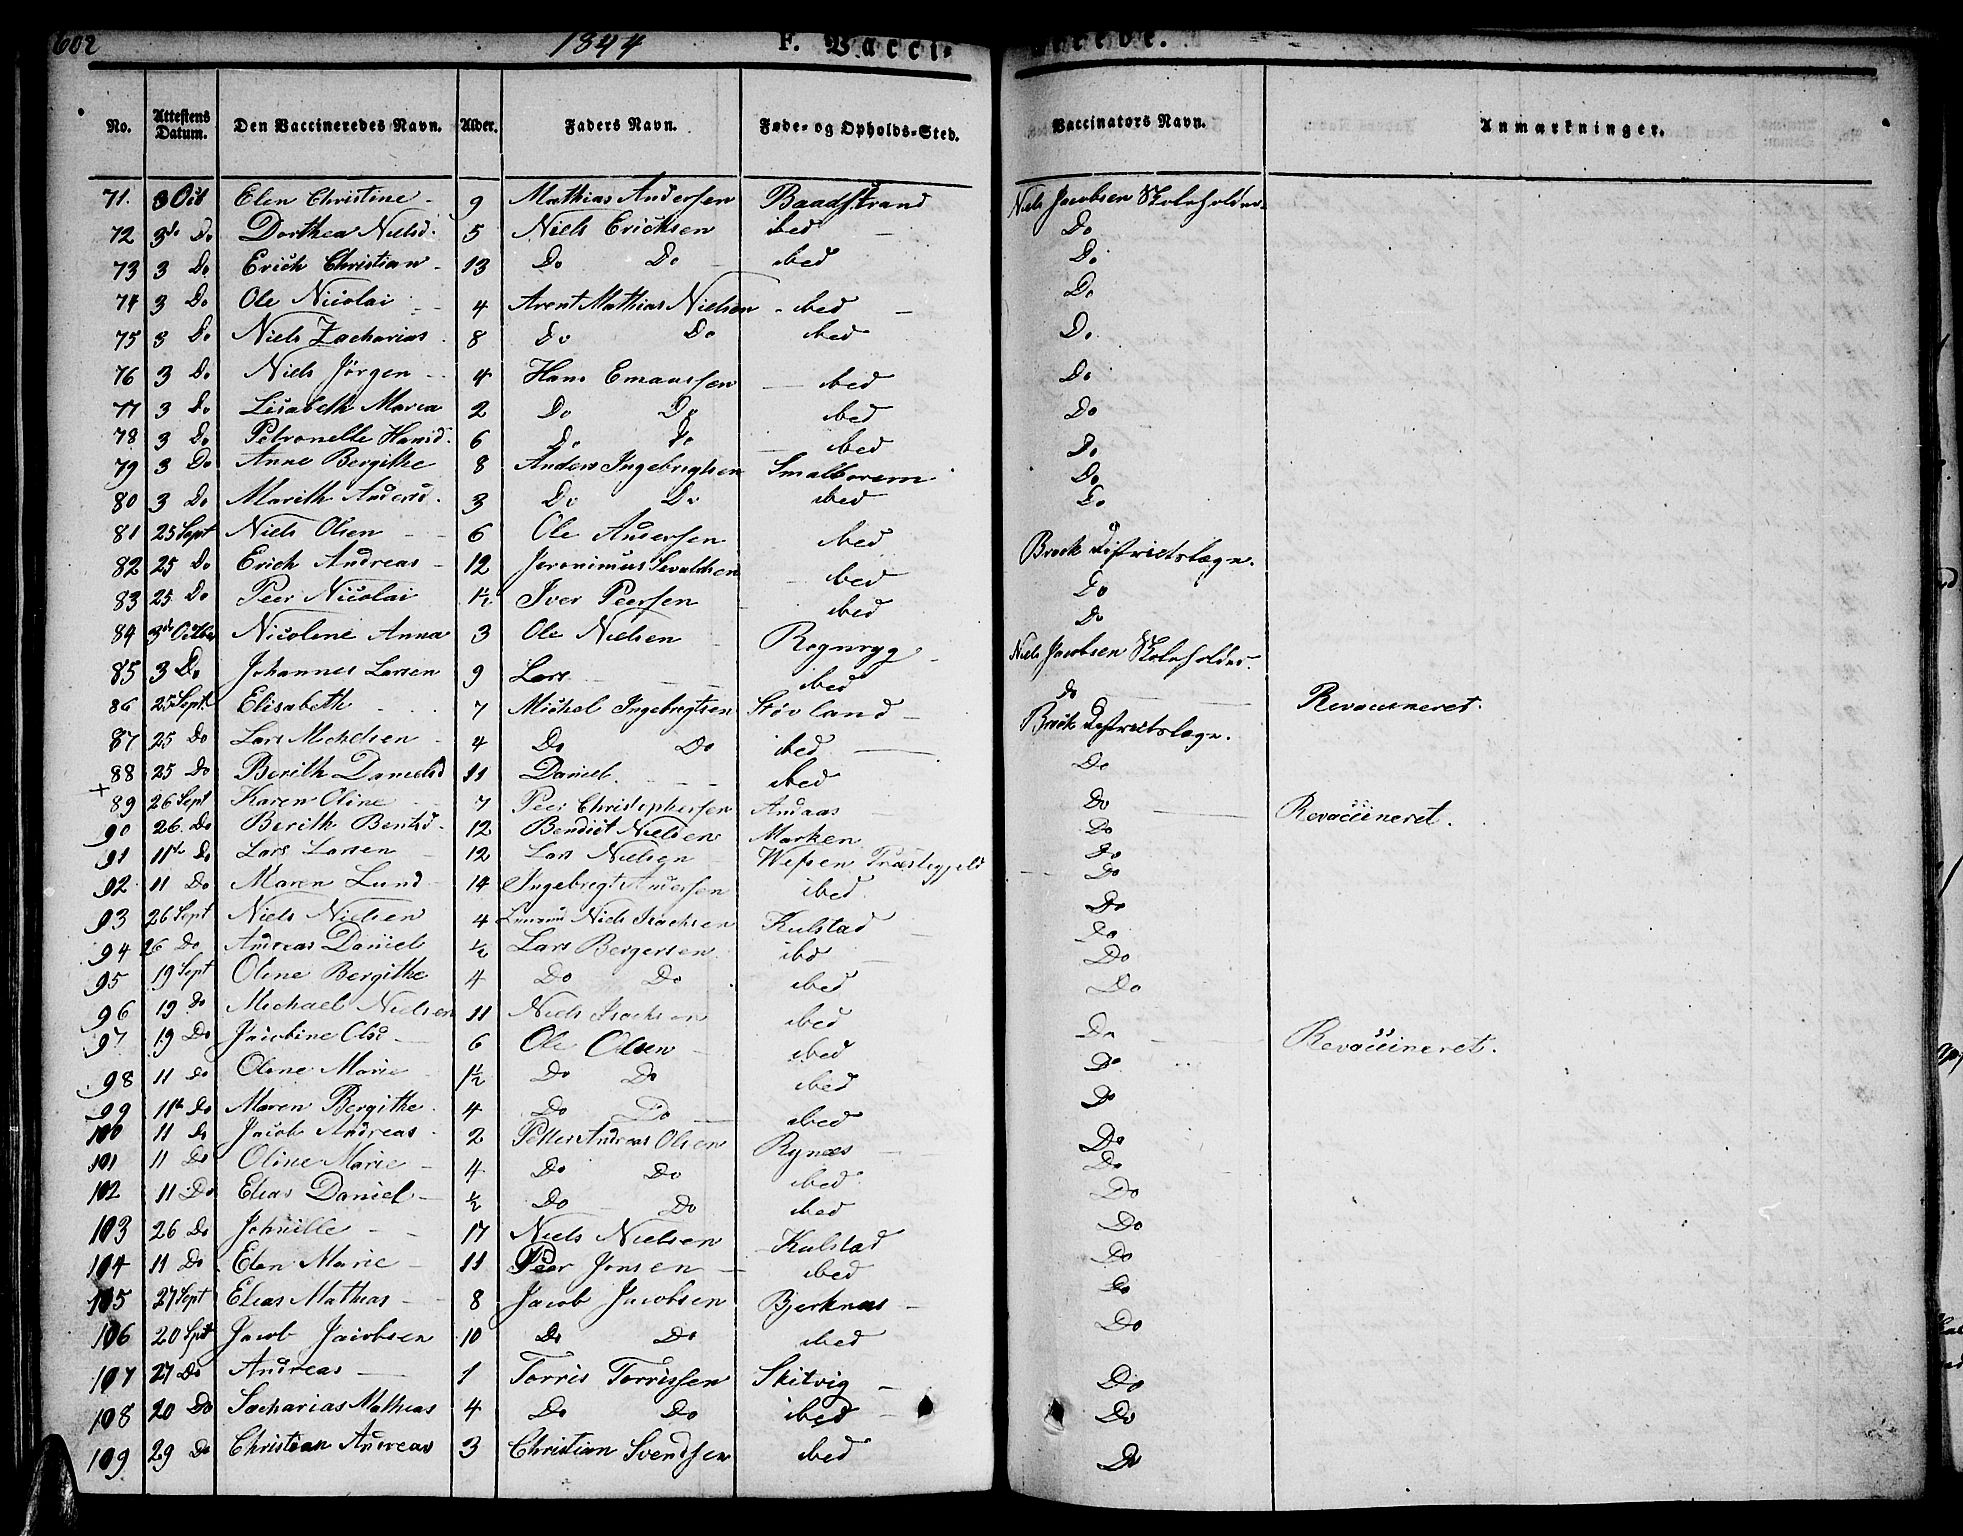 602 1844 F. Vacci- nerede.
No. Attestens Datum. Den Vaccineredes Navn. Alder. Faders Navn. Føde- og Opholds-Sted. Vaccinators Navn. Anmærkninger.
71. 3 Oct Elen Christine 9 Mathias Andersen Baadstrand Niels Jacobsen Skoleholder
72 3de Do Dorthea Nielsd. 5 Niels Ericksen ibed Do
73 3 Do Erich Christian 13 Do Do ibed Do
74 3 Do Ole Nicolai 4 Arent Mathias Nielsen ibed Do
75 3 Do Niels Zacharias 8 Do Do ibed Do
76 3 Do Niels Jörgen 4 Hans Emaussen ibed Do
77 3 Do Lisabeth Maria 2 Do Do ibed Do
78 3 Do Petronelle Hansd. 6 Do Do ibed Do
79 3 Do Anne Bergithe 8 Anders Ingebrigtsen Smalborem Do
80 3 Do Marith Andersd. 3 Do Do ibed Do
81 25 Sept Niels Olsen 6 Ole Andersen ibed Brock Districtslæge.
82 25 Do Erich Andreas 12 Jeronimus Sevaldsen ibed Do
83 25 Do Peer Nicolai 1½ Iver Peersen ibed Do
84 3de Octbr Nicoline Anna 3 Ole Nielsen Regnryg Niels Jacobsen Skoleholder.
85 3 Do Johannes Larsen 9 Lars ibed do
86 25 Sept Elisabeth 7 Michel Ingebregtsen Stövland Brock Districtslæge. Revaccineret.
87 25 Do Lars Michelsen 4 Do Do ibed Do
88 25 Do Berith Danielsd 11 Daniel ibed Do
+ 89 26 Sept Karen Oline 7 Peer Christophersen Andaas Do Revaccineret.
90 26. Do Berith Bentsd. 12 Bendict Nielsen Marken Do
91 11te Do Lars Larsen 12 Lars Nielsen Wefsen Præstegjeld Do
92 11 Do Maren Lund 14 Ingebregt Andersen ibed Do
93 26 Sept Niels Nielsen 4 Niels Isachsen Kulstad Do
94 26 Do Andreas Daniel ½ Lars Bergersen ibd Do
95 19 Sept Oline Bergithe 4 Do Do ibed Do
96 19 do Michael Nielsen 11 Niels Isachsen ibed Do
97 19 Do Jacobine Olsd 6 Ole Olsen ibed Do Revaccineret.
98 11 Do Oline Marie 1½ Do Do ibed Do
99 11te Do Maren Bergithe 4 Do Do ibed Do
100 11 Do Jacob Andreas 2 Petter Andreas Olsen Rynæs Do
101 11 Do Oline Marie 4 Do Do ibed Do
102 11 Do Elias Daniel ½ Do Do ibed Do
103 26 Do Johnille 17 Niels Nielsen Kulstad Do
104 11 Do Elen Marie 11 Peer Jonsen ibed Do
105 27 Sept Elias Mathias 8 Jacob Jacobsen Bjerknæs Do
106 20 Spt Jacob Jacobsen 10 Do Do ibed Do
107 27 Do Andreas 1 Torris Torrissen Skitvig Do
108 20 Do Sacharias Mathias 4 Do Do ibed Do
109 29 Do Christian Andreas 3 Christian Svendsen ibed Do